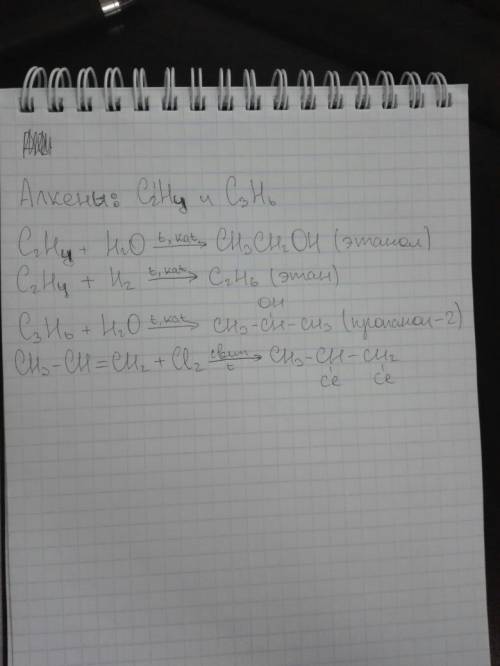 Алкены: C2H4 и C3H6
C2H4 + H2O t, kat → CH3CH2OH (этанол)
C2H4 + H2 t, kat → C2H6 (этан)
OH
C3H6 + H2O t, kat → CH3-CH-CH3 (пропанол-2)
CH3-CH=CH2 + Cl2 t → CH3-CH-CH2
Cl Cl